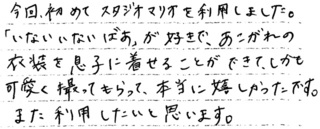 今回、初めてスタジオマリオを利用しました。
「いないいないばあ」が好きで、あこがれの
衣装を息子に着せることができて、しかも
可愛く撮ってもらって、本当に嬉しかったです。
また利用したいと思います。